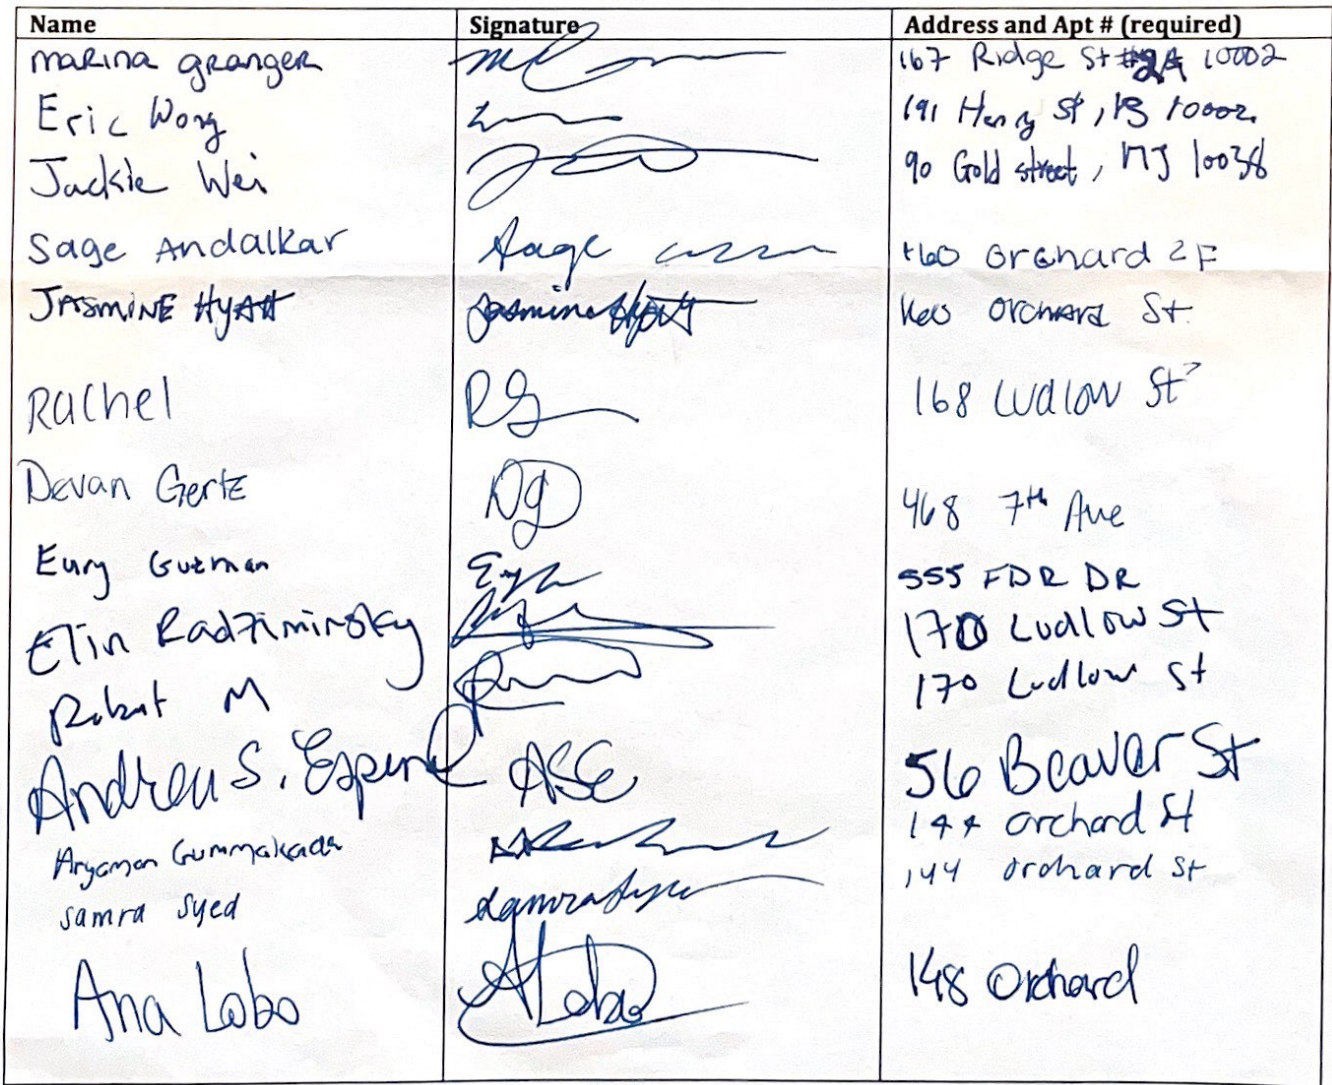 Name Signature Address and Apt # (required)
Marina Granger 167 Ridge St #2A 10002
Eric Wong 191 Henry St, 10002
Jackie Wei 90 Gold street, 10038
Sage Andalkar Sage 160 Orchard 2F
Jasmine Hyatt Jasmine Hyatt 160 Orchard St
Rachel RG 168 Ludlow St
Devan Gertz DG 468 7th Ave
Eury Guzman 555 FDR DR
Elin Radziminsky 170 Ludlow St
Robert M 170 Ludlow St
Andrew S. ASE 56 Beaver St
Aryaman 144 Orchard St
Samra Syed Samra Syed 144 Orchard St
Ana Lobo ALobo 148 Orchard